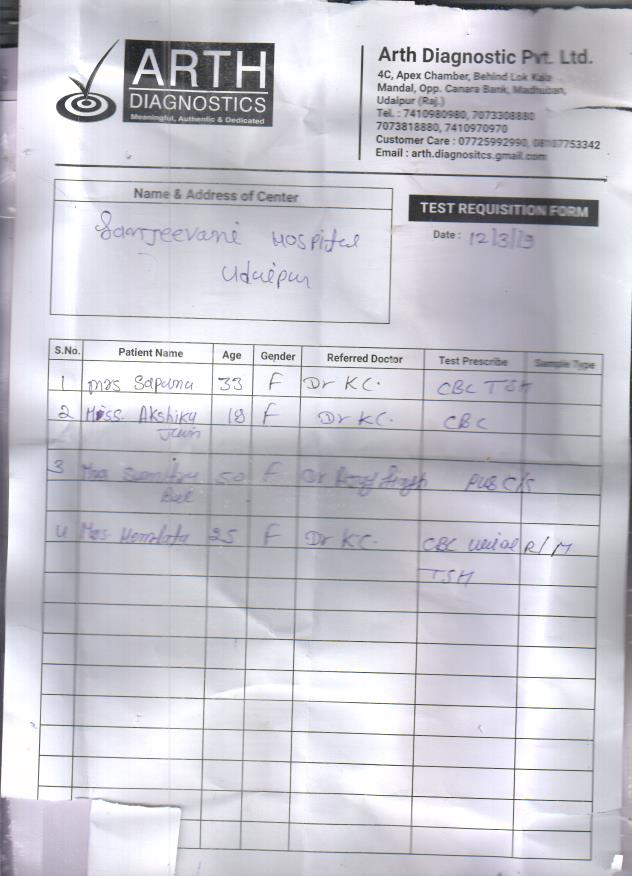 ARTH
DIAGNOSTICS
Meaningful, Authentic & Dedicated
Arth Diagnostic Pvt. Ltd.
4C, Apex Chamber, Behind Lok Kala
Mandal, Opp. Canara Bank, Madhuban,
Udaipur (Raj.)
Tel. : 7410980980, 7073308880
7073818880, 7410970970
Customer Care : 07725992990,
Email : arth.diagnositcs.gmail.com
Name & Address of Center
TEST REQUISITION FORM
Sanjeevani Hospital
Udaipur
Date : 12/3/19
S.No. Patient Name Age Gender Referred Doctor Test Prescribe Sample Type
1 Mrs Sapana 33 F Dr KC. CBC TSH
2 Miss. Akshika 18 F Dr KC. CBC
Jain
3 Mrs Sumitra 50 F Dr Singh PUS C/S
4 Mrs Hemlata 25 F Dr KC. CBC Urine R/M
TSH